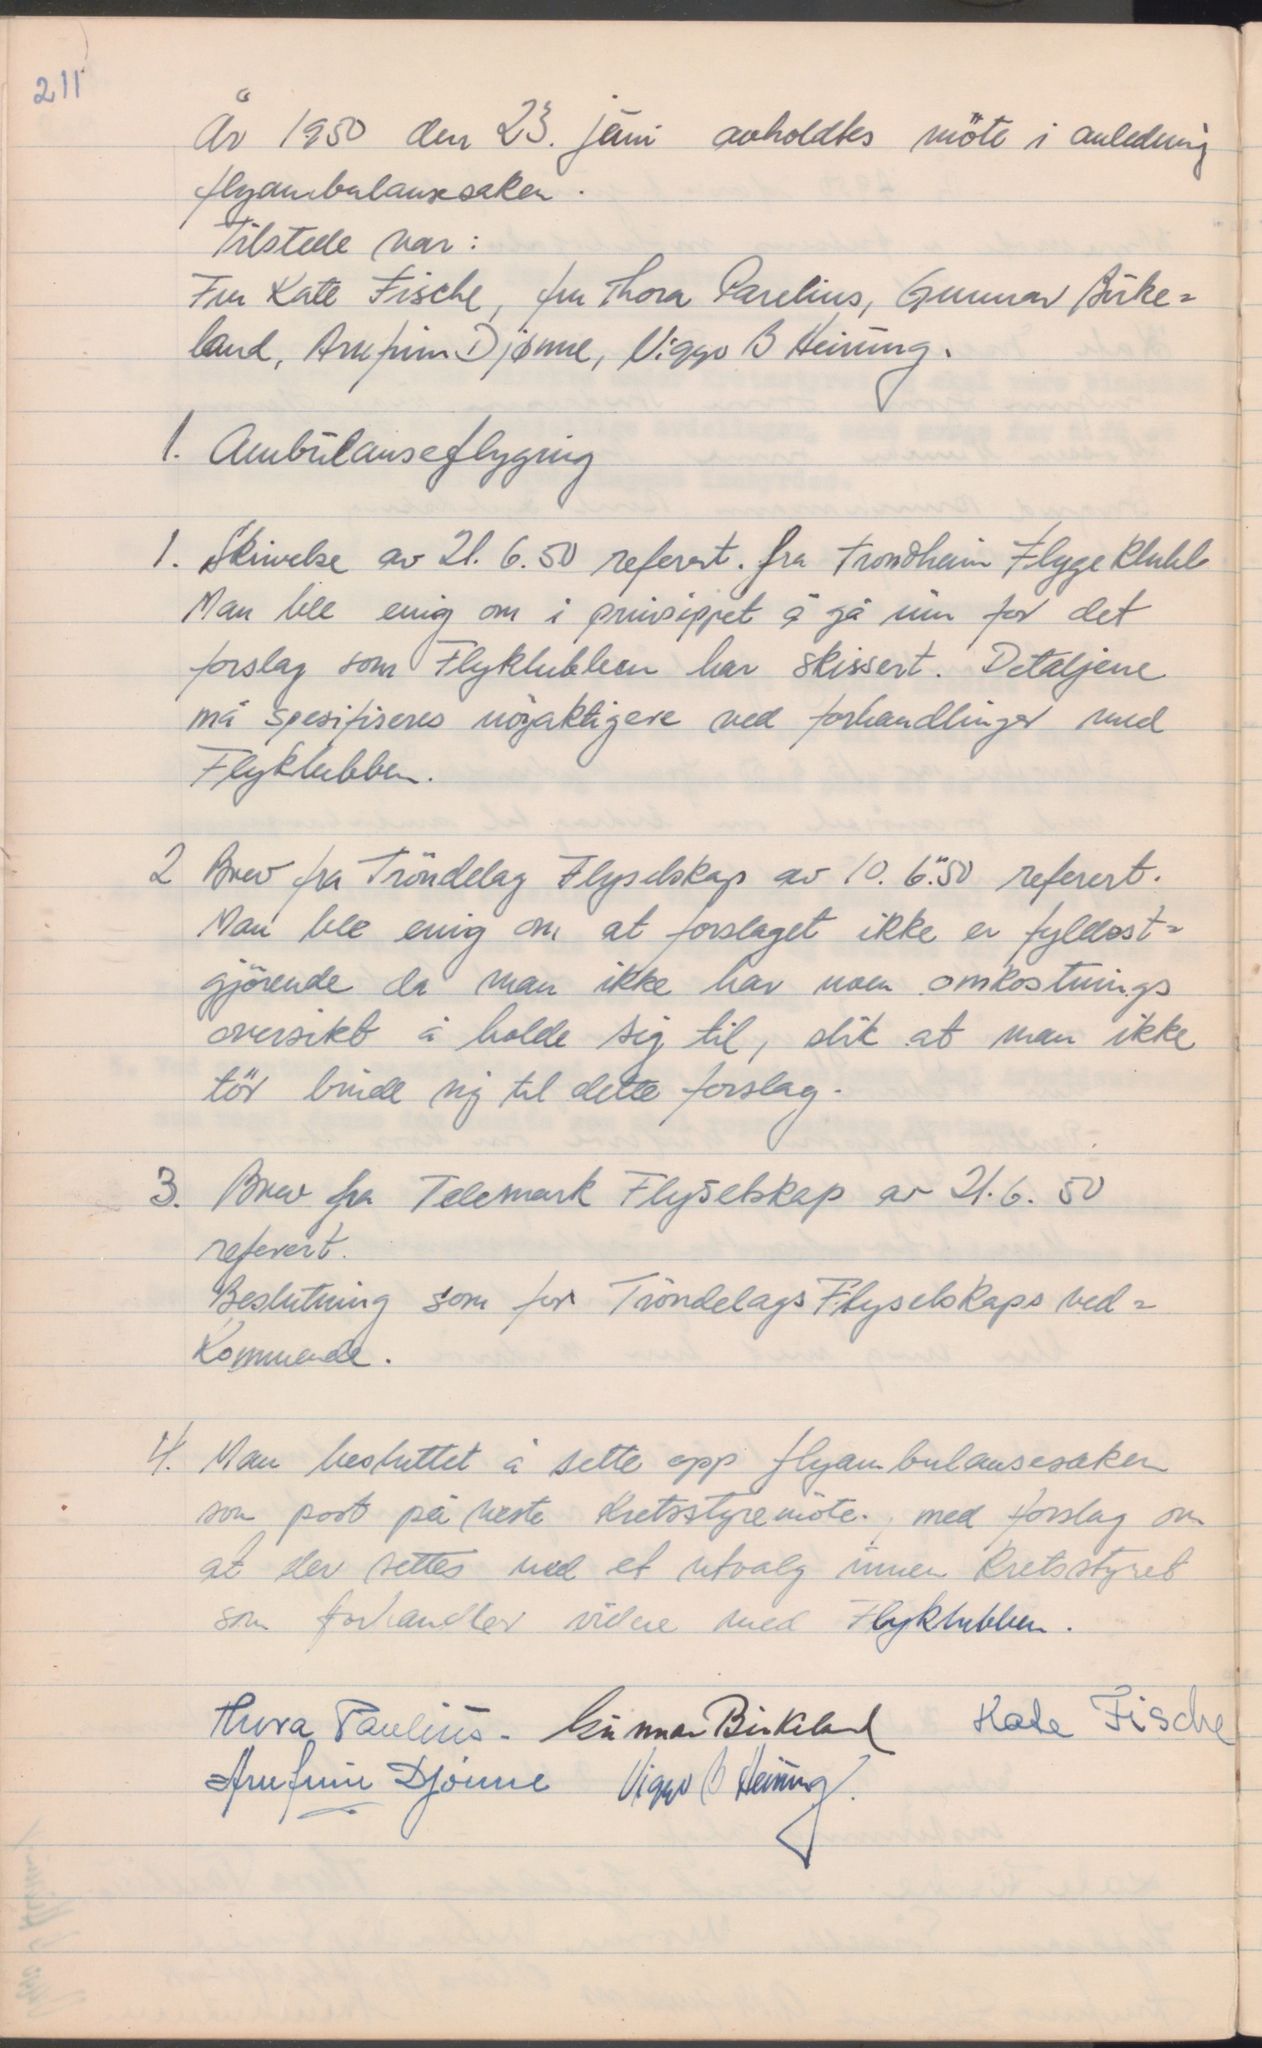 211
År 1950 den 23. juni avholdtes möte i anledning
flyambulansesaken.
Tilstede var:
Fru Kate Fische, fru Thora Parelius, Gunnar Birke=
land, Arnfinn Djønne, Viggo B Heining.
1. Ambulanseflyging
1. Skrivelse av 21.6.50 referert. fra Trondheim Flygeklubb
Man ble enig om i prinsippet å gå inn for det
forslag som Flyklubben har skissert. Detaljene
må spesifiseres nöyaktigere ved forhandlinger med
Flyklubben.
2 Brev fra Tröndelag Flyselskap av 10.6.50 referert.
Man ble enig om at forslaget ikke er fyldest=
gjörende da man ikke har noen omkostnings
oversikt å holde sig til, slik at man ikke
tör binde sig til dette forslag.
3. Brev fra Telemark Flyselskap av 21.6.50
referert.
Beslutning som for Tröndelags Flyselskaps ved=
kommende.
4. Man besluttet å sette opp flyambulansesaken
som post på neste Kretsstyremöte., med forslag om
at der settes ned et utvalg innen Kretsstyret
som forhandler videre med Flyklubben.
Thora Parelius. Gunnar Birkeland Kate Fische
Arnfinn Djönne Viggo B Heining.